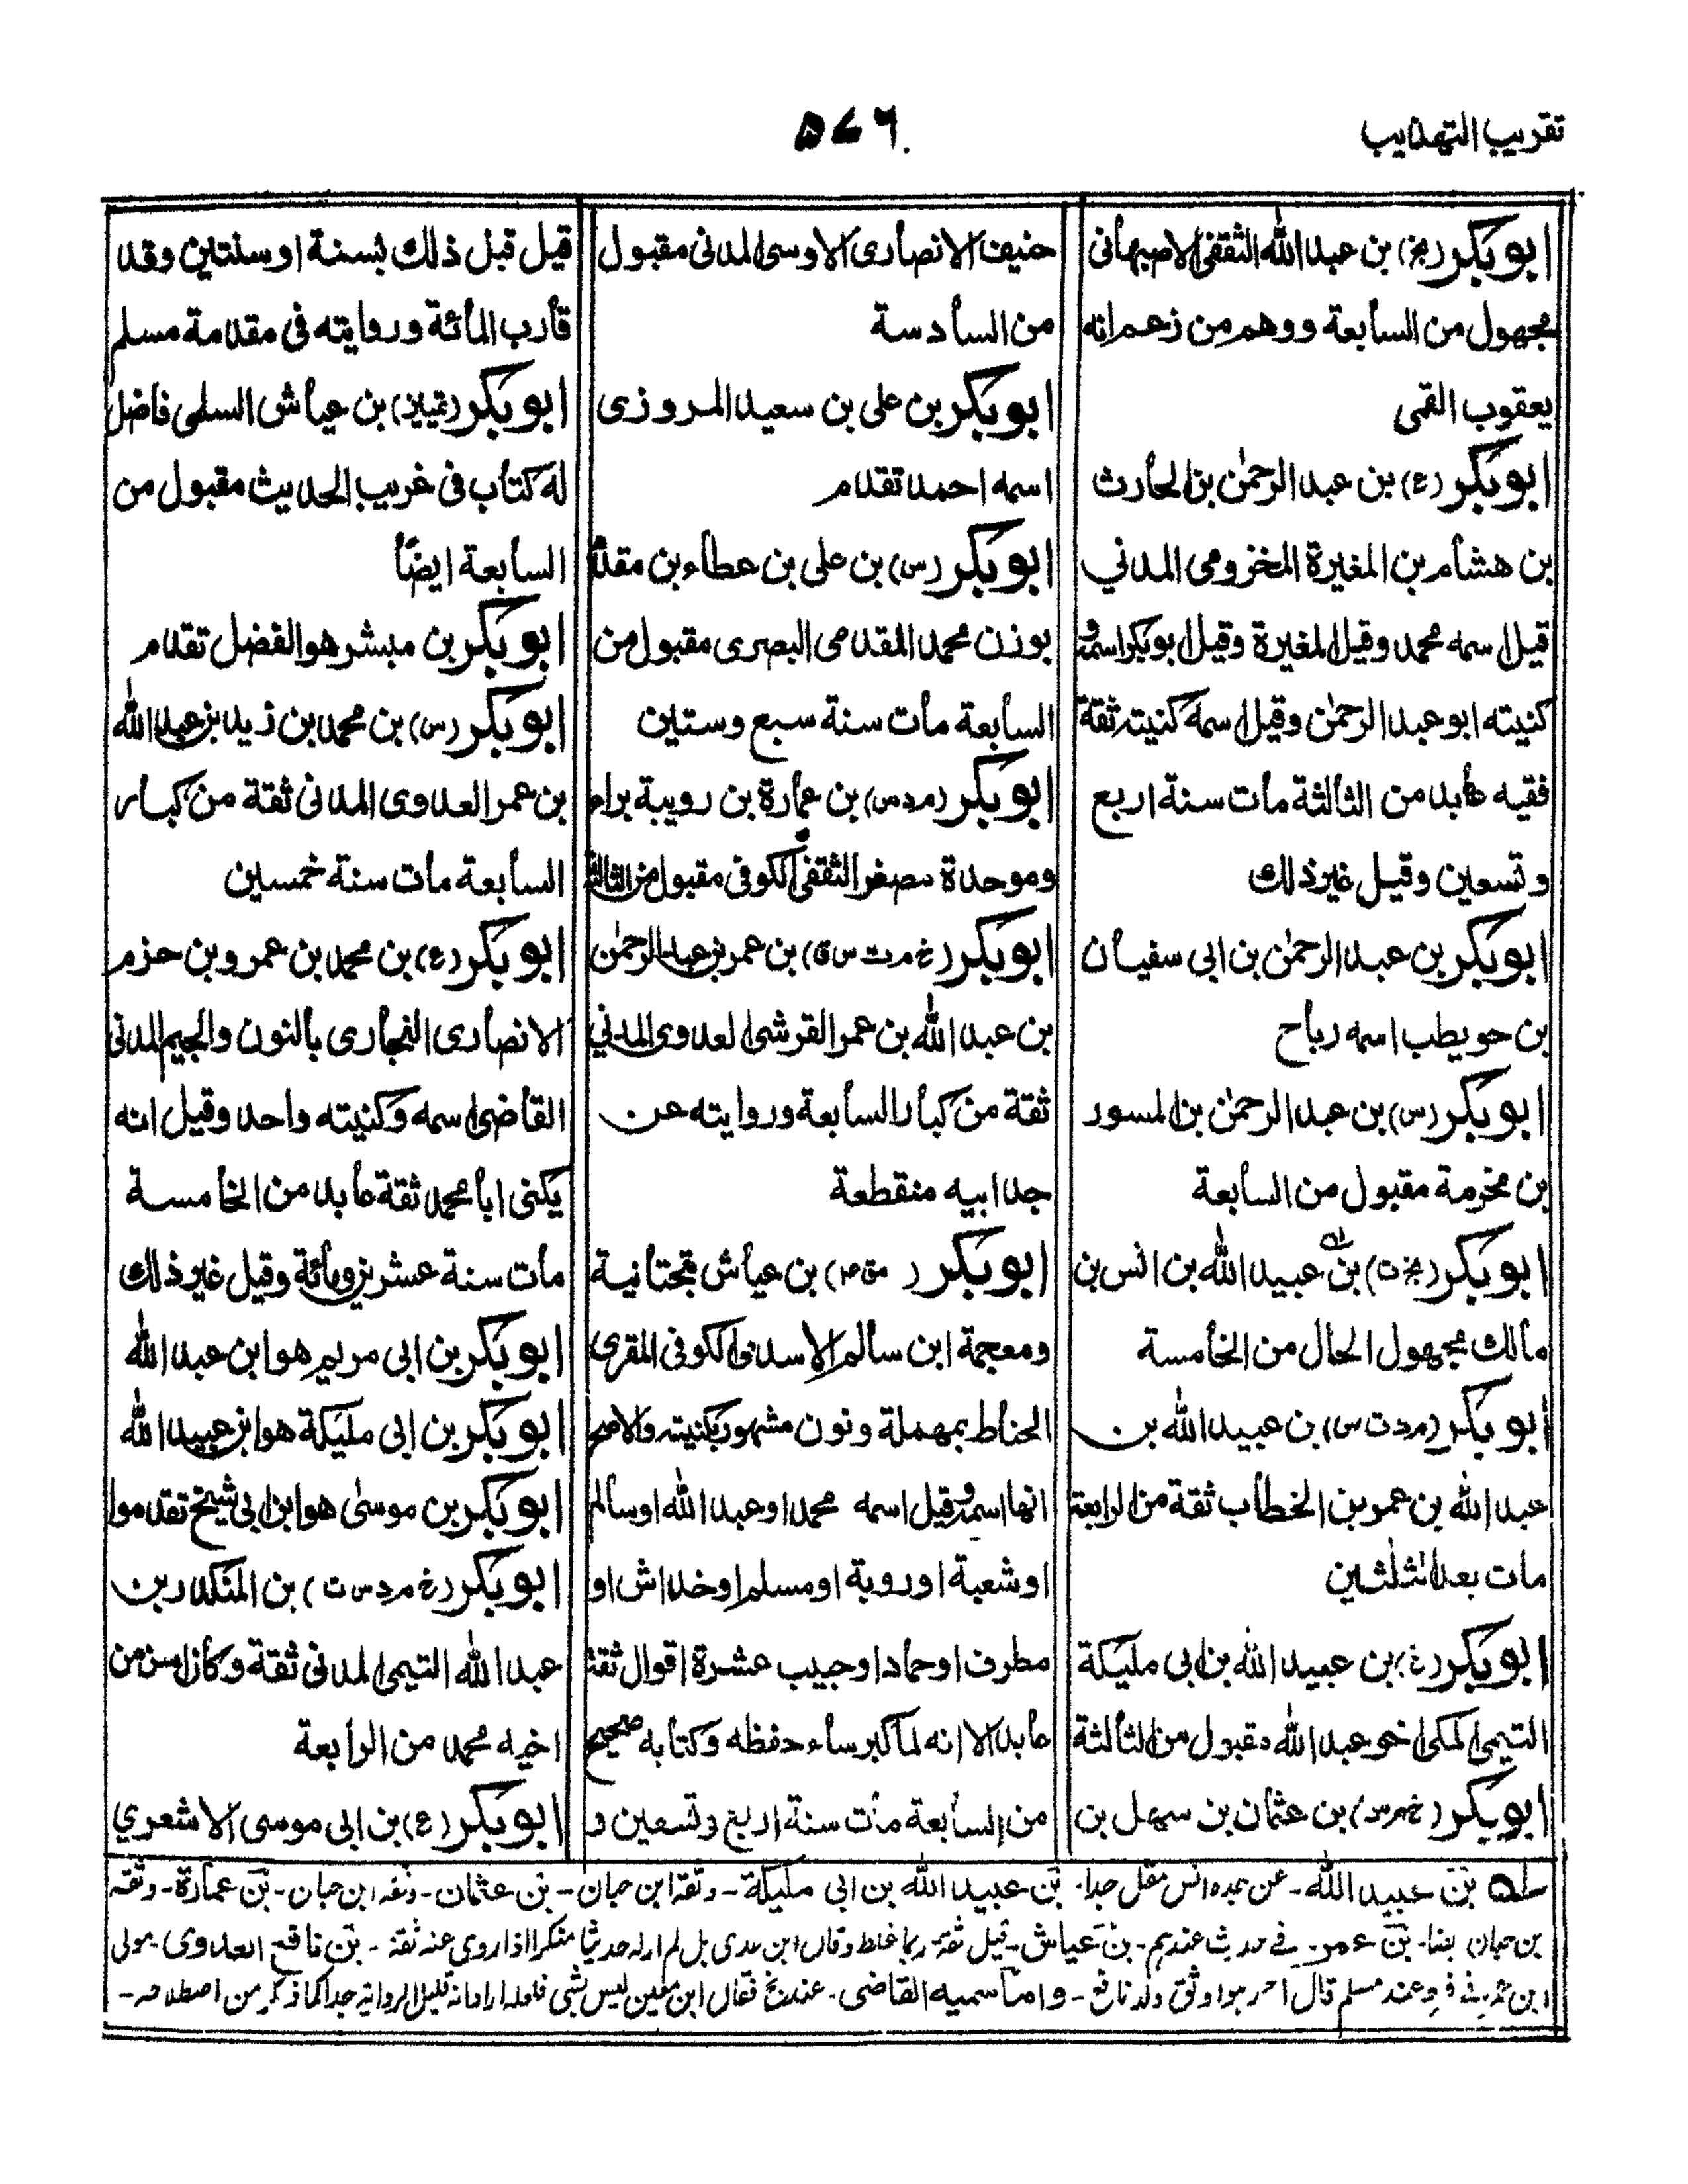 تقريب التهذيب
٥٧٦
ابو بكر (بخ) بن عبد الله الثقفى الاصبهانى
مجهول من السابعة ووهم من زعم انه
يعقوب القمى
ابو بكر (ع) بن عبد الرحمٰن بن الحارث
بن هشام بن المغيرة المخزومى المدني
قيل اسمه محمد وقيل المغيرة وقيل ابو بكر اسمه و
كنيته ابو عبد الرحمٰن وقيل اسمه كنيته ثقة
فقيه عابد من الثالثة مات سنة اربع
وتسعين وقيل غير ذلك
ابو بكر بن عبد الرحمٰن بن ابى سفيان
بن حويطب اسمه رباح
ابو بكر (س) بن عبد الرحمٰن بن المسور
بن مخرمة مقبول من السابعة
ابو بكر (بخ ت) بن عبيد الله بن انس بن
مالك مجهول الحال من الخامسة
ابو بكر (م د ت س) بن عبيد الله بن
عبد الله بن عمر بن الخطاب ثقة من الرابعة
مات بعد الثلثين
ابو بكر (خ) بن عبيد الله بن ابى مليكة
التيمى المكى اخو عبد الله مقبول من الثالثة
ابو بكر (خ م س) بن عثمان بن سهل بن
حنيف الانصارى الاوسى المدنى مقبول
من السادسة
ابو بكر بن على بن سعيد المروزى
اسمه احمد تقدم
ابو بكر (س) بن على بن عطاء بن مقدم
بوزن محمد المقدمى البصرى مقبول من
السابعة مات سنة سبع وستين
ابو بكر (م د س) بن عمارة بن رويبة براء
وموحدة مصغر الثقفى الكوفى مقبول من الثالثة
ابو بكر (خ م ت س ق) بن عمر بن عبد الرحمٰن
بن عبد الله بن عمر القرشى العدوى المدني
ثقة من كبار السابعة وروايته عن
جد ابيه منقطعة
ابو بكر ( مق ع) بن عياش بتحتانية
ومعجمة ابن سالم الاسدى الكوفى المقرى
الحناط بمهملة ونون مشهور بكنيته والاصح
انها اسمه وقيل اسمه محمد او عبد الله او سالم
او شعبة او روبة او مسلم او خداش او
مطرف او حماد او حبيب عشرة اقوال ثقة
عابد الا انه لما كبر ساء حفظه وكتابه صحيح
من السابعة مات سنة اربع وتسعين و
قيل قبل ذلك بسنة او سنتين وقد
قارب المائة وروايته فى مقدمة مسلم
ابو بكر (تمييز) بن عياش السلمى فاضل
له كتاب فى غريب الحديث مقبول من
السابعة ايضًا
ابو بكر بن مبشر هو الفضل تقدم
ابو بكر (س) بن محمد بن زيد بن عبد الله
بن عمر العدوى المدنى ثقة من كبار
السابعة مات سنة خمسين
ابو بكر (ع) بن محمد بن عمرو بن حزم
الانصارى النجارى بالنون والجيم المدنى
القاضى اسمه وكنيته واحد وقيل انه
يكنى ابا محمد ثقة عابد من الخامسة
مات سنة عشرين ومائة وقيل غير ذلك
ابو بكر بن ابى مريم هو ابن عبد الله
ابو بكر بن ابى مليكة هو ابن عبيد الله
ابو بكر بن موسىٰ هو ابن ابى شيخ تقدموا
ابو بكر (خ م د س ت) بن المنكدر بن
عبد الله التيمى المدنى ثقة وكان اسن من
اخيه محمد من الرابعة
ابو بكر (ع) بن ابى موسى الاشعري
بن عبيد الله - عن جده انس مقل جدا - بن عبيد الله بن ابى مليكة - وثقه ابن حبان - بن عثمان - وثقه ابن حبان - بن عمارة - وثقه
بن حبان بن عمر - فى حديث عندهم - بن عياش - قيل ثقة ربما غلط وقال ابن عدى بل لم ار له حديثا منكرا اذا روى عنه ثقة - بن نافع العدوى - مولى
ابن عمر وعند مسلم قال احمد هو اوثق ولد نافع - واما سميه القاضى - فقال ابن معين ليس بشى فلعله اراد انه قليل الرواية جدا كما ذكر من اصطلاحه -